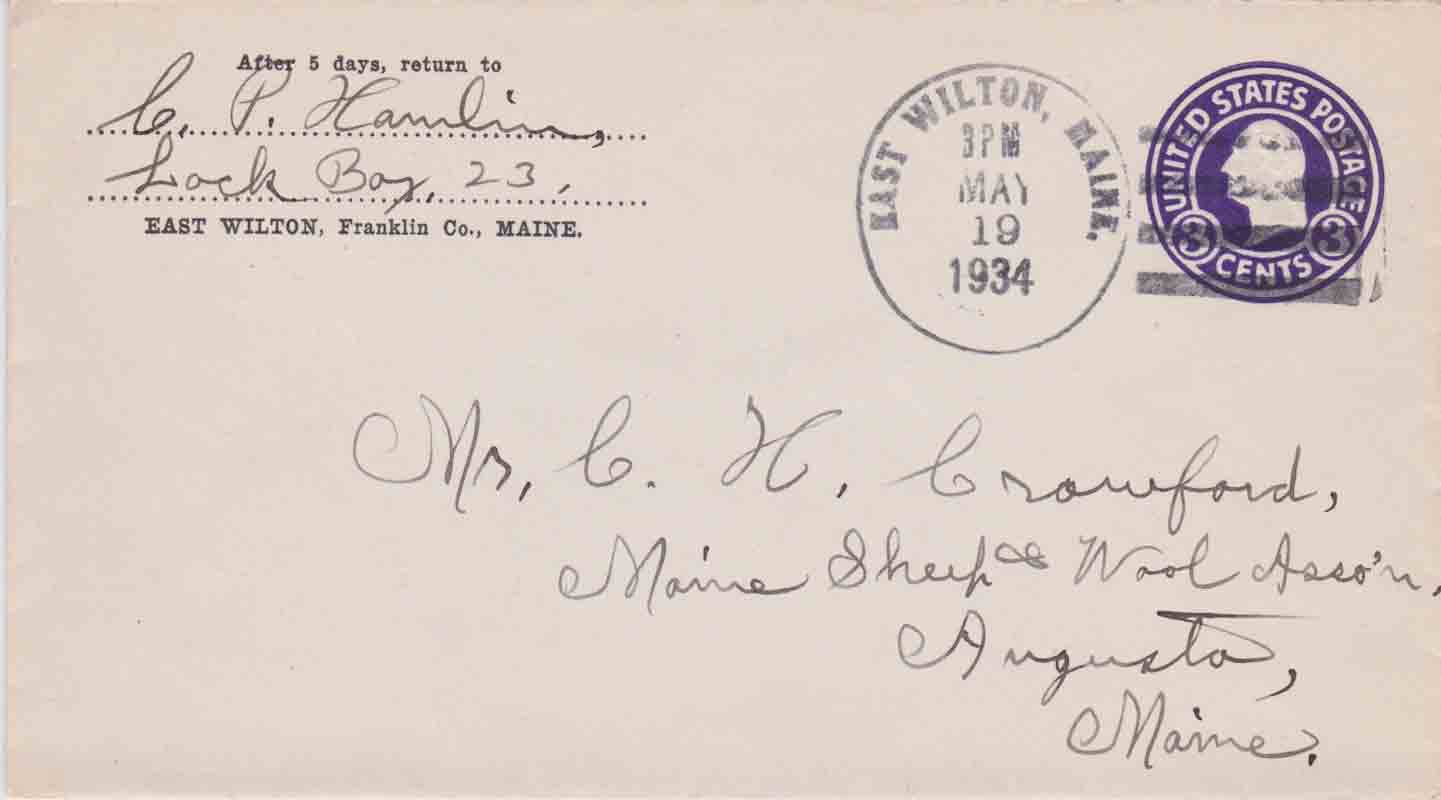 After 5 days, return to
C. P. Hamlin,
Lock Box, 23,
EAST WILTON, Franklin Co., MAINE.
EAST WILTON, MAINE.
3 PM
MAY
19
1934
UNITED STATES POSTAGE
3 3
CENTS
Mr, C. H. Crowford,
Maine Sheep & Wool Asso'n,
Augusta,
Maine.